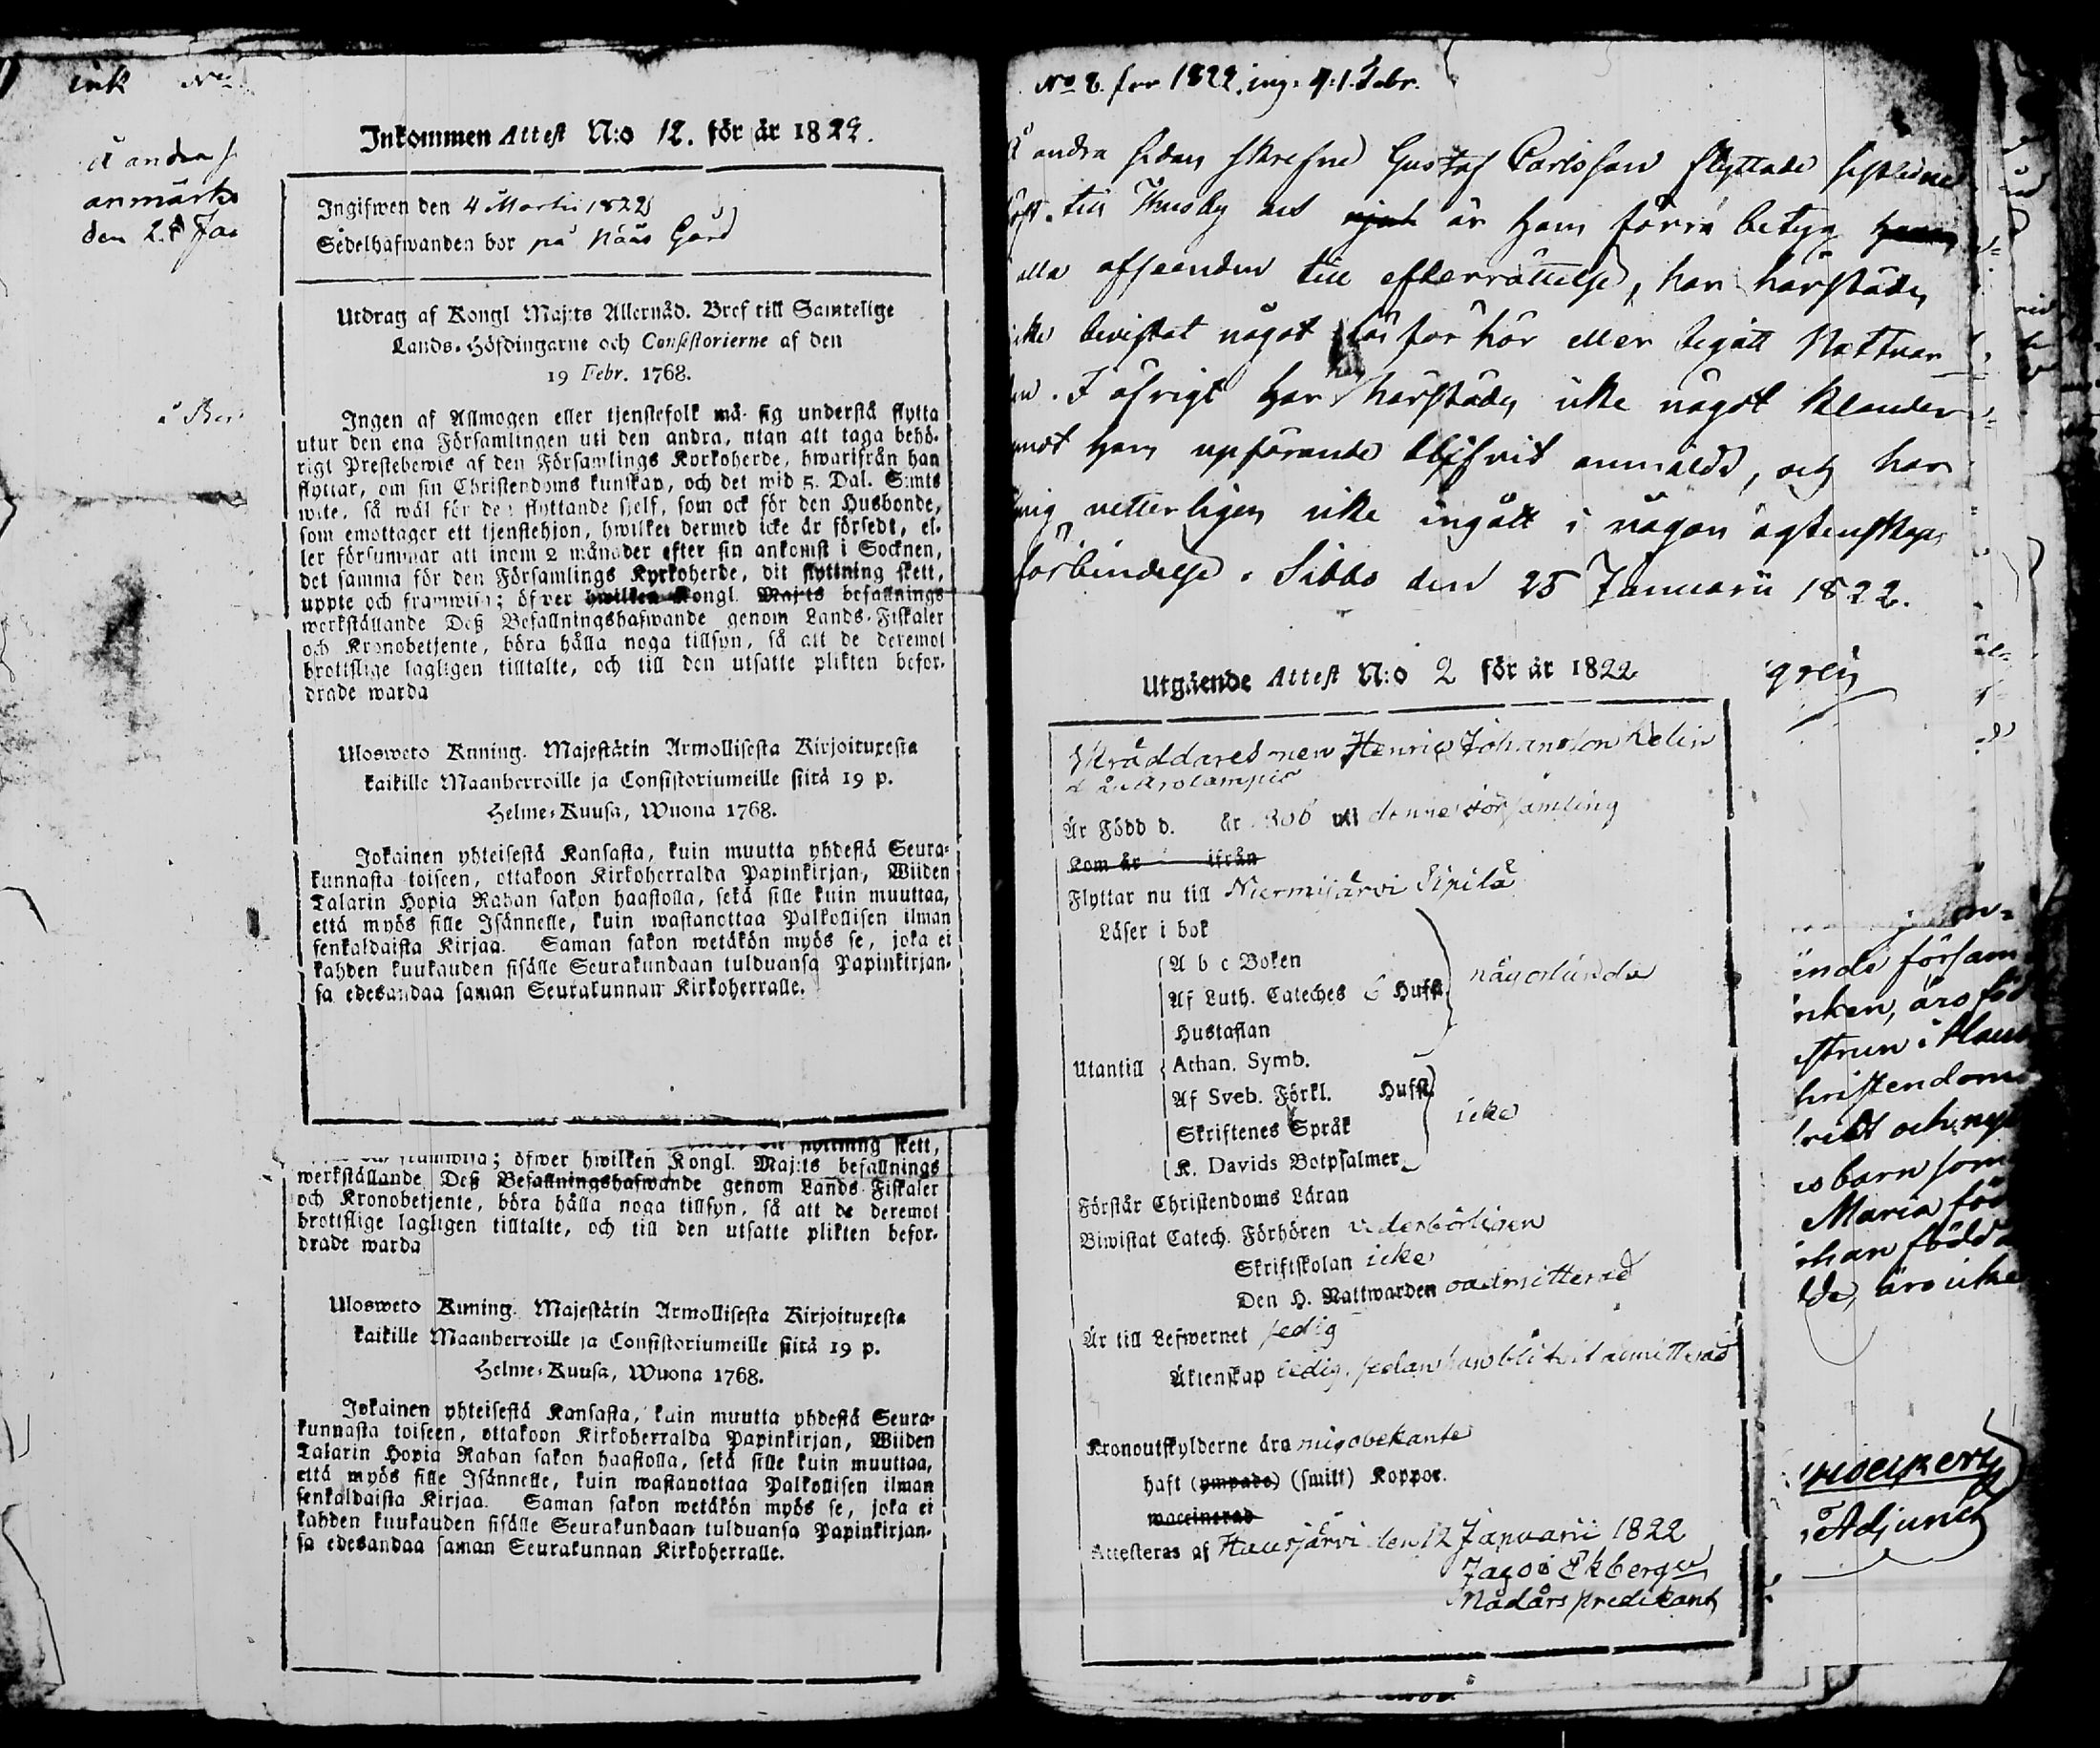 ink No
Å andra s
anmärk
den 28 Jan
Inkommen Attest N:o 12. för år 1822.
Ingifwen den 4 Martii 1822
Sedelhafwanden bor på Nääs Gård
Utdrag af Kongl Maj:ts Allernåd. Bref till Samtelige
Lands-Höfdingarne och Consistorierne af den
19 Febr. 1768.
Ingen af Allmogen eller tjenstefolk må sig understå flytta
utur den ena Församlingen uti den andra, utan att taga behö-
rigt Prestebewis af den Församlings Kyrkoherde, hwarifrån han
flyttar, om sin Christendoms kunskap, och det wid 5. Dal. S:mts
wite, så wäl för den flyttande sjelf, som ock för den Husbonde,
som emottager ett tjenstehjon, hwilket dermed icke är försedt, el-
ler försummar att inom 2 månader efter sin ankomst i Socknen,
det samma för den Församlings Kyrkoherde, dit flyttning skett,
uppte och framwisa; öfwer hwilken Kongl. Maj:ts befallnings
werkställande Deß Befallningshafwande genom Lands-Fiskaler
och Kronobetjente, böra hålla noga tillsyn, så att de deremot
brottslige lagligen tilltalte, och till den utsatte plikten befor-
drade warda
Ulosweto Kuning. Majestätin Armollisesta Kirjoituxesta
kaikille Maanherroille ja Consistoriumeille siitä 19 p.
Helme-Kuusa, Wuona 1768.
Jokainen yhteisestä Kansasta, kuin muutta yhdestä Seura-
kunnasta toiseen, ottakoon Kirkoherralda Papinkirjan, Wiiden
Talarin Hopia Rahan sakon haastolla, sekä sille kuin muuttaa,
että myös sille Isännelle, kuin wastanottaa Palkollisen ilman
senkaldaista Kirjaa. Saman sakon wetäkön myös se, joka ei
kahden kuukauden sisälle Seurakundaan tulduansa Papinkirjan-
sa edesandaa saman Seurakunnan Kirkoherralle.
flyttning skett,
framwisa; öfwer hwilken Kongl. Maj:ts befallnings
werkställande Deß Befallningshafwande genom Lands Fiskaler
och Kronobetjente, böra hålla noga tillsyn, så att de deremot
brottslige lagligen tilltalte, och till den utsatte plikten befor-
drade warda
Ulosweto Kuning. Majestätin Armollisesta Kirjoituxesta
kaikille Maanherroille ja Consistoriumeille siitä 19 p.
Helme-Kuusa, Wuona 1768.
Jokainen yhteisestä Kansasta, kuin muutta yhdestä Seura-
kunnasta toiseen, ottakoon Kirkoherralda Papinkirjan, Wiiden
Talarin Hopia Rahan sakon haastolla, sekä sille kuin muuttaa,
että myös sille Isännelle, kuin wastanottaa Palkollisen ilman
senkaldaista Kirjaa. Saman sakon wetäkön myös se, joka ei
kahden kuukauden sisälle Seurakundaan tulduansa Papinkirjan-
sa edesandaa saman Seurakunnan Kirkoherralle.
No 8. för 1822. ing: d. 1. Febr.
Å andra sidan skrefne Gustaf Carlsson flyttade sistledne
höst till Thusby och är Hans förra betyg
alla afseenden till efterrättelse, har härstädes
icke bevistat något Läsförhör eller begått Nattvar
den. I öfrigt har härstädes icke något klander
mot Hans upförande blifvit anmäldt, och har
mig vetterligen icke ingått i någon ägtenskaps
förbindelse. Sibbo den 25 Januarii 1822.
Utgående Attest N:o 2 för år 1822
Skräddaresonen Henric Johansson Kelin
Arolampis
Är Född d. år 1806 uti denne församling
Kom år ifrån
Flyttar nu till Niemisjärvi Sipilä
Läser i bok
A b c Boken
Af Luth. Cateches 6 Hufst. någorlunda
Hustaflan
Utantill Athan. Symb.
Af Sveb. Förkl. Hufst.
Skriftenes Språk icke
K. Davids Botpsalmer
Förstår Christendoms Läran
Biwistat Catech. Förhören vederbörligen
Skriftskolan icke
Den H. Nattwarden oadmitterad
Är till Lefwernet sedig
Äktenskap ledig, sedan han blifvit admitterad
Kronoutskylderne äro mig obekante
haft (ympade) (smitt) Koppor.
waccinerad
Attesteras af Hausjärvi den 12 Januarii 1822
Jacob Ekberg
Nådårs predikant
ende försam
nken, äro föd
hristendom
och
barn som
Maria föd
ohan född
äro icke
Adjunct